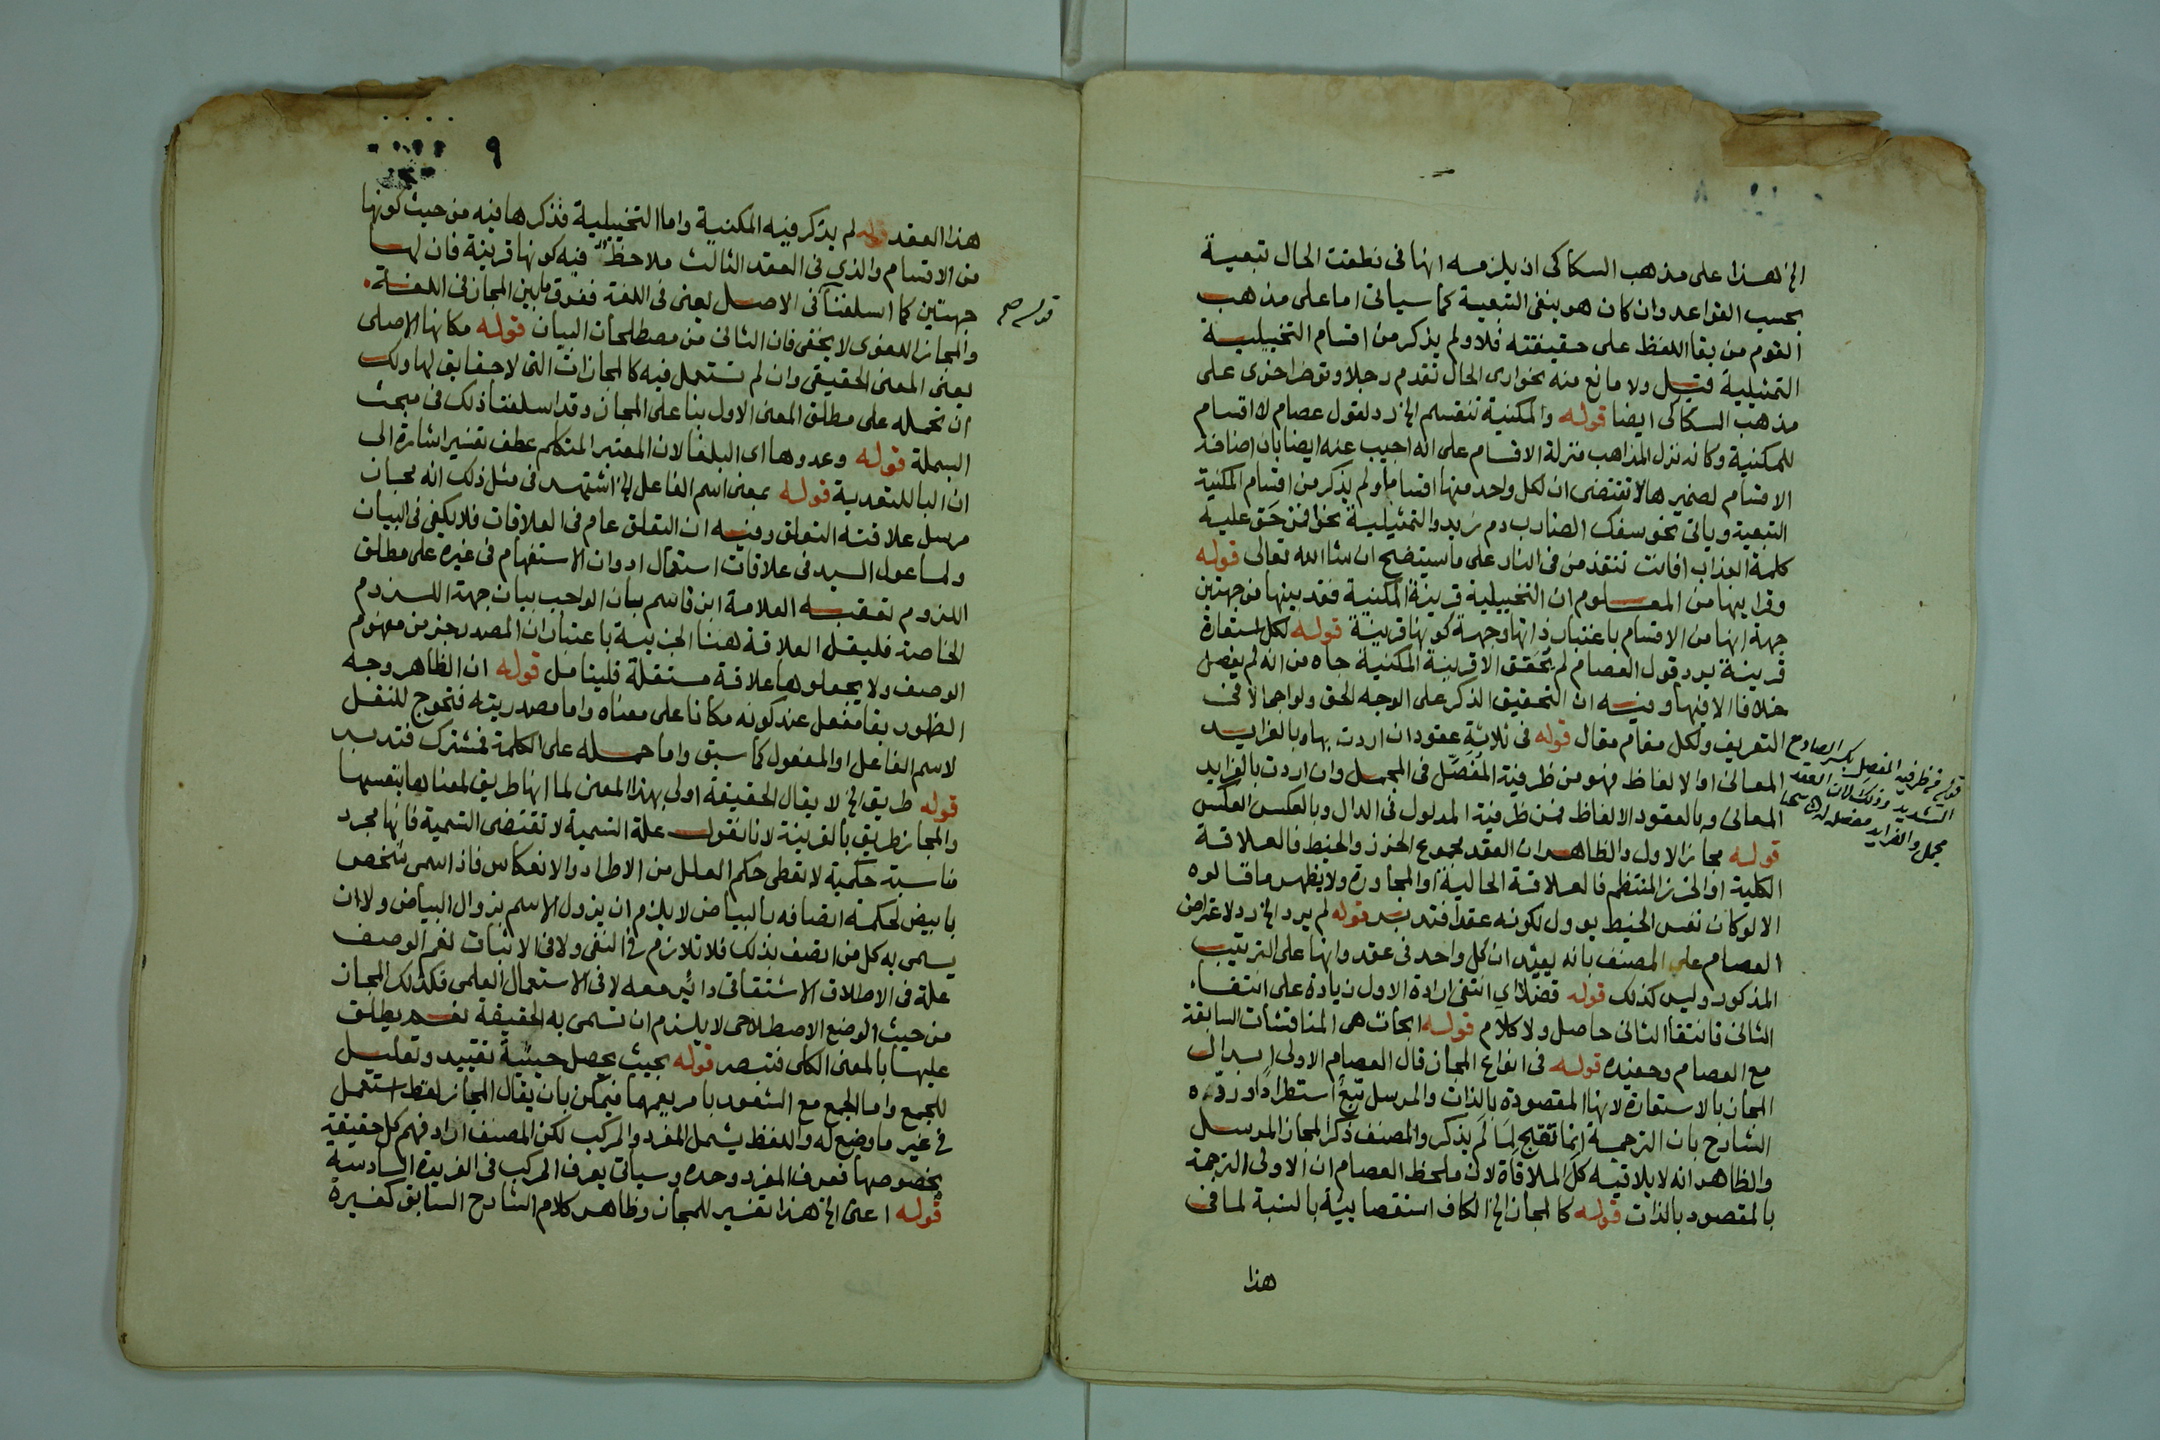 الخ هذا على مذهب السكاكى ان يلزمه انها فى نطقت الحال تبعية
بحسب القواعد وان كان هو ينفى التبعية كما سياتى اما على مذهب
القوم من بقا اللفظ على حقيقته فلا ولم يذكر من اقسام التخييلية
التمثيلية قيل ولا مانع منه نحو ارى الحال تقدم رجلا وتوخر اخرى على
مذهب السكاكى ايضا قوله والمكنية تنقسم الخ رد لقول عصام لا اقسام
للمكنية وكانه نزل المذاهب منزلة الاقسام على انه اجيب عنه ايضا بان اضافة
الاقسام لضميرها لا تقتضى ان لكل واحد منها اقساما ولم يذكر من اقسام المكنية
التبعية وياتى نحو سفك الضارب دم زيد والتمثيلية نحو افمن حق عليه
كلمة العذاب افانت تنقذ من فى النار على ما سيتضح ان شا الله تعالى قوله
وقرا ينها من المعلوم ان التخييلية قرينة المكنية فقد بينها من جهتين
جهة انها من الاقسام باعتبار ذاتها وجهة كونها قرينة قوله لكل استعارة
قرينة يرد قول العصام لم تحقق الا قرينة المكنية جاه من انه لم يفصل
خلافا الا فيها وفيه ان التحقيق الذكر على الوجه الحق ولو اجمالا فى
التعريف ولكل مقام مقال قوله فى ثلاثة عقود ان اردت بها وبالفرايد
المعانى او الالفاظ فهو من ظرفية المفصل فى المجمل وان اردت بالفرايد
المعانى وبالعقود الالفاظ فمن ظرفية المدلول فى الدال وبالعكس العكس
قوله مجاز الاول والظاهر ان العقد مجموع الخرز والخيط فالعلاقة
الكلية او الخرز المنتظم فالعلاقة الحالية او المجاورة ولا يظهر ما قالوه
الا لو كان نفس الخيط يوول لكونه عقدا فتدبر قوله لم يرد الخ رد لاعتراض
العصام على المصنف بانه يفيد ان كل واحد فى عقد وانها على الترتيب
المذكور وليس كذلك قوله فضلا اي انتفى ارادة الاول زيادة على انتفاء
الثانى فانتفا الثانى حاصل ولا كلام قوله ابحاث هى المناقشات السابقة
مع العصام وحفيده قوله فى انواع المجاز قال العصام الاولى ابدال
المجاز بالاستعارة لانها المقصودة بالذات والمرسل تبع استطرادا ورده
الشارح بان الترجمة انما تقبح لما لم يذكر والمصنف ذكر المجاز المرسل
والظاهر انه لا يلاقيه كل الملاقاة لان ملحظ العصام ان الاولى الترجمة
بالمقصود بالذات قوله كالمجاز الخ الكاف استقصا بيئة بالنسبة لما فى
هذا
قوله فمن ظرفية المفصل بكسر الصاد مع
التشديد وذلك لان العقد
مجمل والفرايد مفصلة له
٩
هذا العقد قوله لم يذكر فيه المكنية واما التخييلية فذكرها فيه من حيث كونها
من الاقسام والذي فى العقد الثالث ملاحظ فيه كونها قرينة فان لها
جهتين كما اسلفنا فى الاصل يعنى فى اللغة ففرق ما بين المجاز فى اللغة
والمجاز اللغوى لا يخفى فان الثانى من مصطلحات البيان قوله مكانها الاصلى
يعنى المعنى الحقيقى وان لم تستعمل فيه كالمجازات التى لا حقايق لها ولك
ان تحمله على مطلق المعنى الاول بنا على المجاز وقد اسلفنا ذلك فى مبحث
البسملة قوله وعدوها اى البلغا لان المعتبر المتكلم عطف تفسير اشارة الى
ان البا للتعدية قوله بمعنى اسم الفاعل الخ اشتهر فى مثل ذلك انه مجاز
مرسل علاقته التعلق وفيه ان التعلق عام فى العلاقات فلا يكفى فى البيان
ولما عول السيد فى علاقات استعمال ادوات الاستفهام فى غيره على مطلق
اللزوم تعقبه العلامة ابن قاسم بان الواجب بيان جهة اللزوم
الخاصة فليقل العلاقة هنا الجزيية باعتبار ان المصدر جزء من مفهوم
الوصف ولا يجعلوها علاقة مستقلة فليتامل قوله ان الظاهر وجه
الظهور بقا مفعل عند كونه مكانا على معناه واما مصدريته فتحوج للنقل
لاسم الفاعل او المفعول كما سبق واما حمله على الكلمة فمشترك فتدبر
قوله طريق الخ لا يقال الحقيقة اولى بهذا المعنى لما انها طريق لمعناها بنفسها
والمجاز طريق بالقرينة لانا نقول علة التسمية لا تقتضى التسمية فانها مجرد
مناسبة حكمية لا تعطى حكم العلل من الاطراد والانعكاس فاذا سمى شخص
بابيض لحكمة اتصافه بالبياض لا يلزم ان يزول الاسم بزوال البياض ولا ان
يسمى به كل من اتصف بذلك فلا تلازم فى النفى ولا فى الاثبات نعم الوصف
علة فى الاطلاق الاشتقاقى دائر معه لا فى الاستعمال العلمى فكذلك المجاز
من حيث الوضع الاصطلاحى لا يلزم ان تسمى به الحقيقة نعم يطلق
عليها بالمعنى الكلى فتبصر قوله بحيث يحصل حيثية تقييد وتعليل
للجمع واما الجمع مع الشعور بامر يعمها فيمكن بان يقال المجاز لفظ استعمل
فى غير ما وضع له واللفظ يشمل المفرد والمركب لكن المصنف اراد فهم كل حقيقة
بخصوصها فعرف المفرد وحده وسياتى يعرف المركب فى الفريدة السادسة
قوله اعنى الخ هذا تفسير للمجاز وظاهر كلام الشارح السابق كغيره
قوله صح